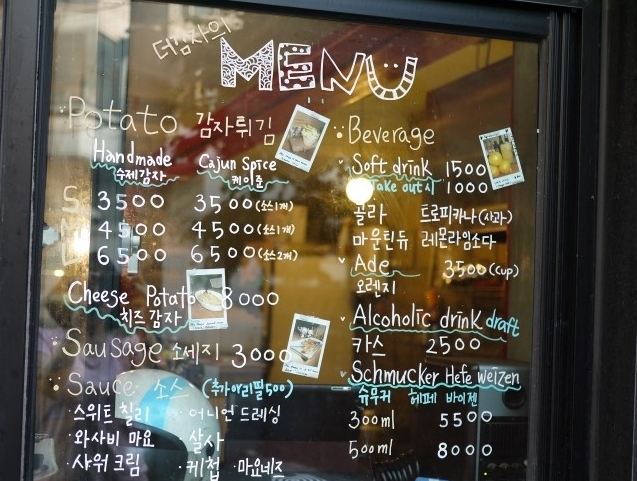 더감자의
MENU
Potato 감자튀김
Handmade 수제감자
Cajun Spice 케이준
S 3500 3500 (소스1개)
M 4500 4500 (소스1개)
L 6500 6500 (소스2개)
Cheese Potato 8000
치즈감자
Sausage 소세지 3000
Sauce 소스 (추가/리필500)
·스위트 칠리 ·어니언 드레싱
·와사비 마요 ·살사
·사워크림 ·케첩 ·마요네즈
Beverage
Soft drink 1500
Take out시 1000
콜라 트로피카나(사과)
마운틴듀 레몬라임소다
Ade 3500(cup)
오렌지
Alcoholic drink draft
카스 2500
Schmucker Hefe weizen
슈무커 헤페 바이젠
300ml 5500
500ml 8000